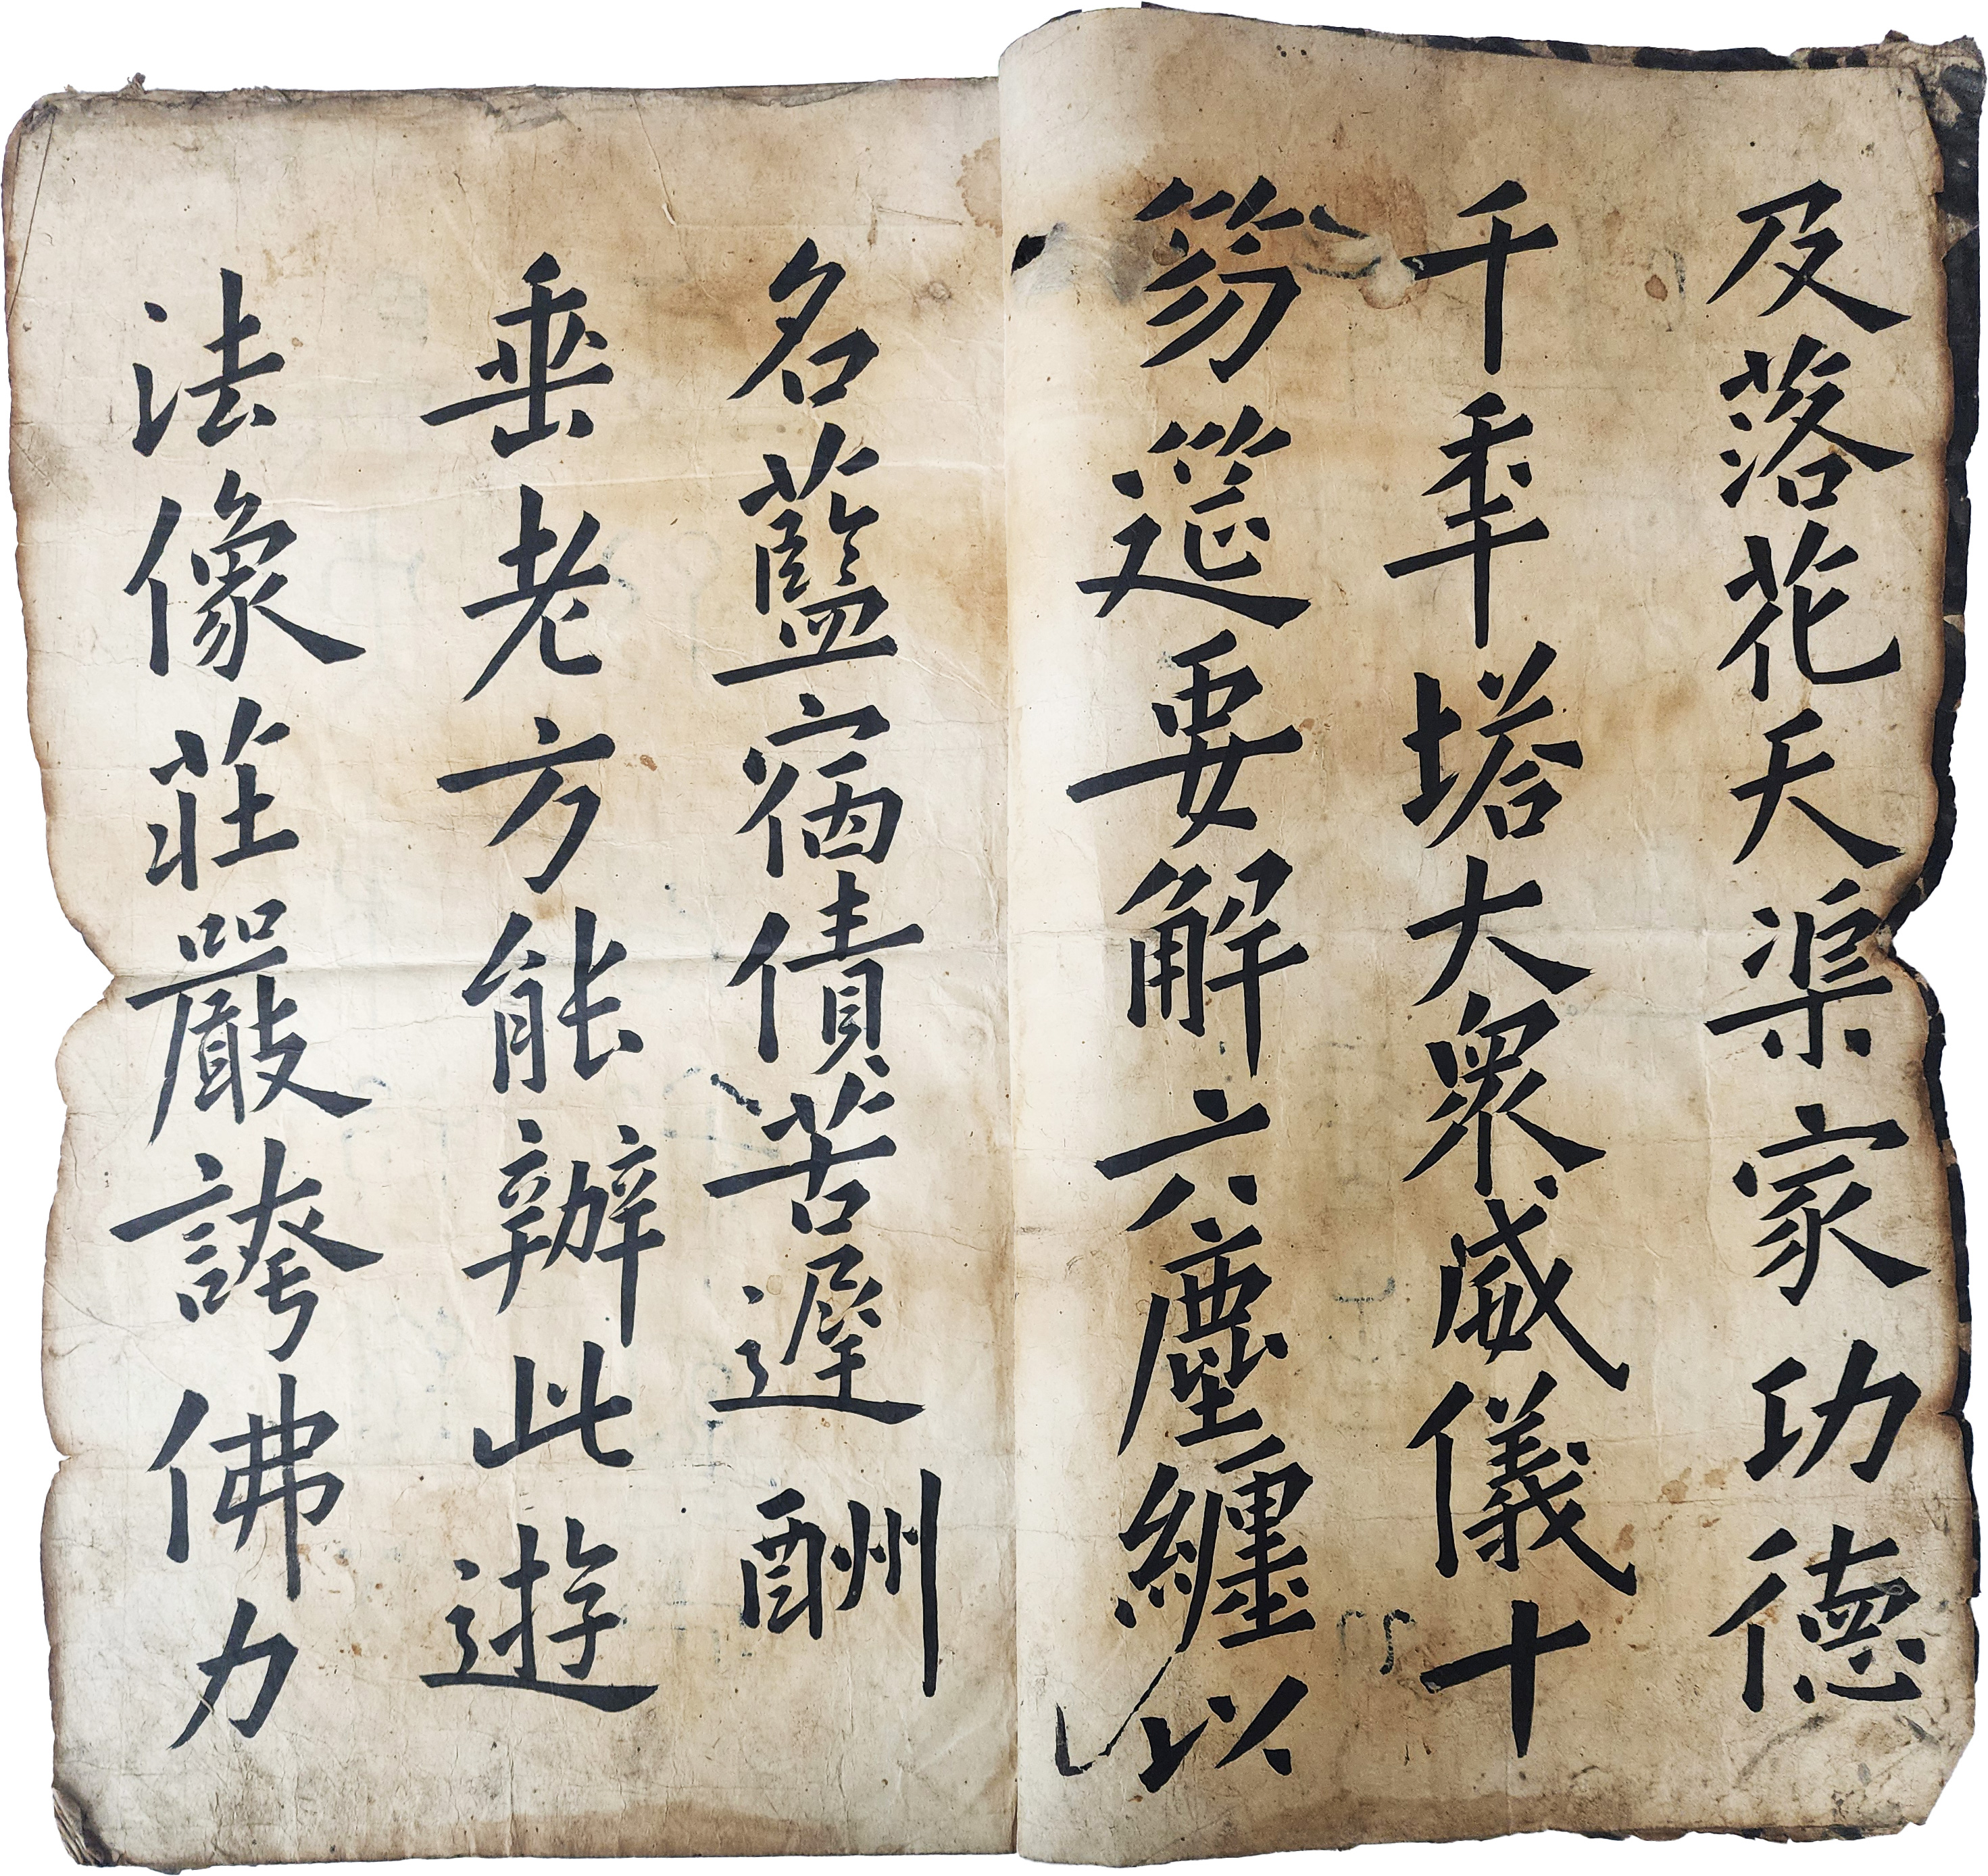 及落花天渠家功德
千秊塔大衆威儀十
笏筵要解六塵纏以
名藍宿債苦遲酬
垂老方能辦此遊
法像莊嚴誇佛力